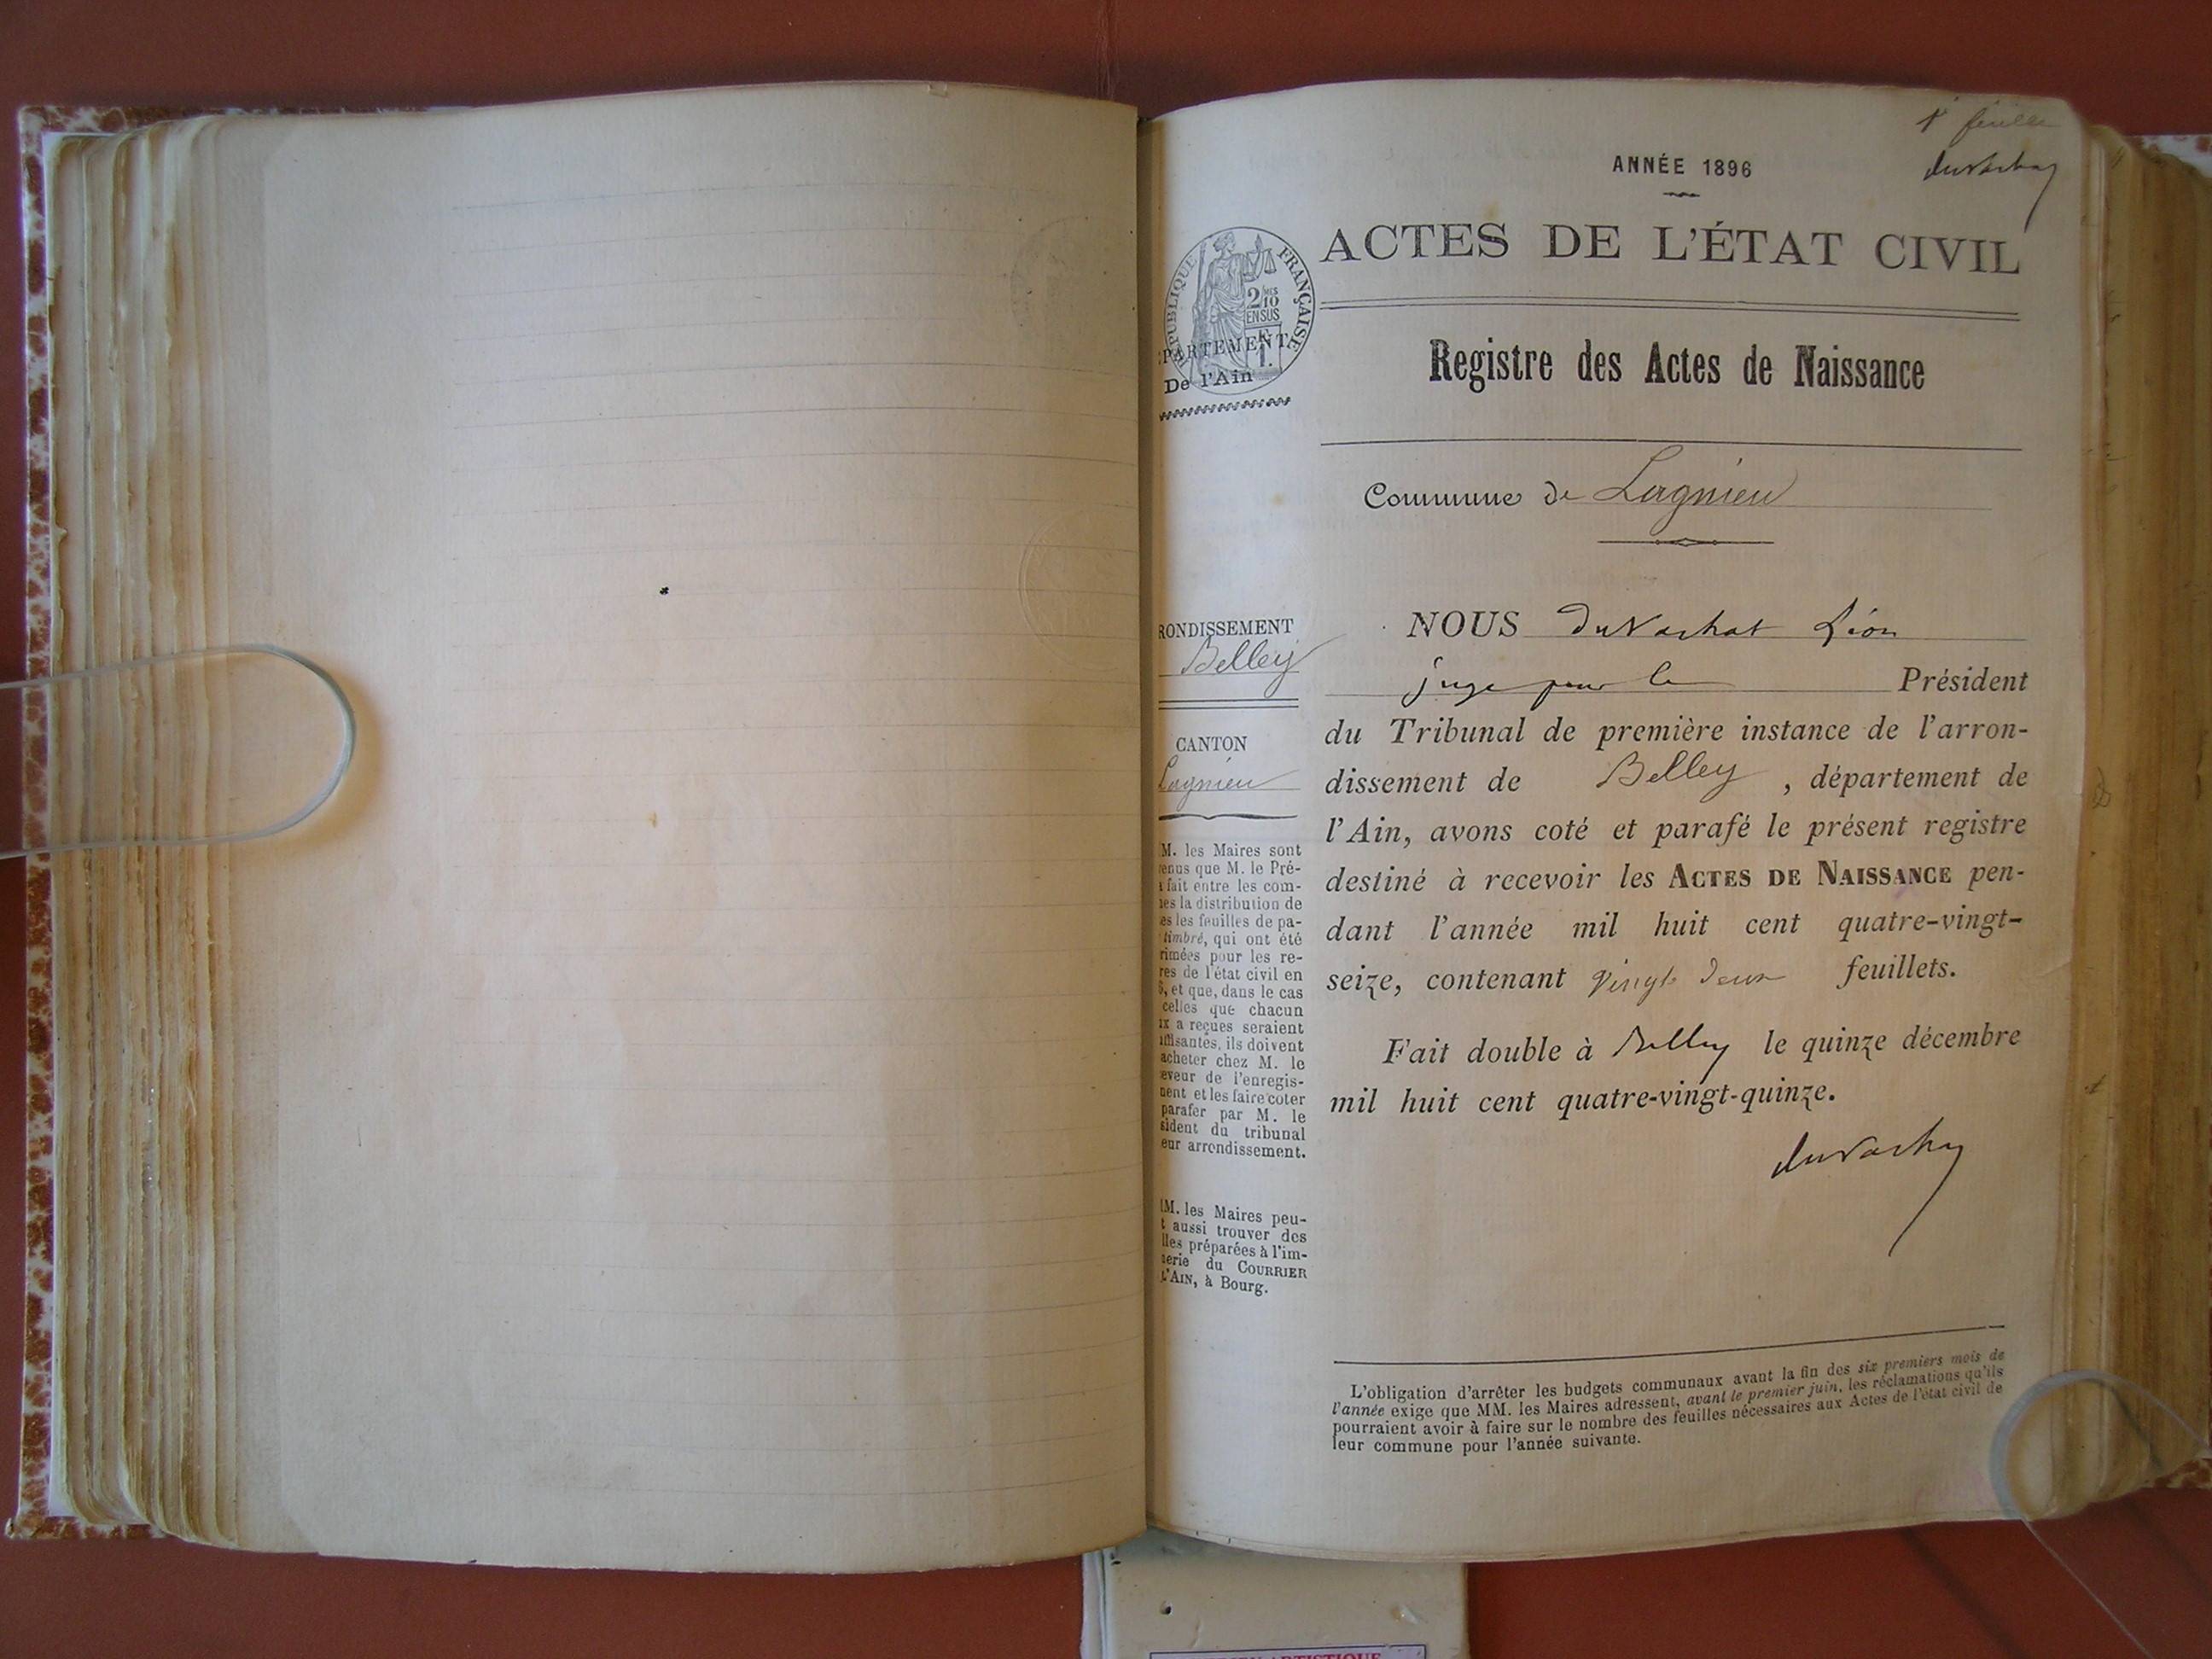 1er feuillet
ANNÉE 1896
Duvachat
ACTES DE L'ÉTAT CIVIL
RÉPUBLIQUE FRANÇAISE
2/10 MES
EN SUS
1 F.
PARTEMENT
De l'Ain
Registre des Actes de Naissance
Commune de Lagnieu
RONDISSEMENT
Belley
CANTON
Lagnieu
M. les Maires sont
enus que M. le Pré-
a fait entre les com-
nes la distribution de
es les feuilles de pa-
timbré, qui ont été
rimées pour les re-
res de l'état civil en
6, et que, dans le cas
celles que chacun
ux a reçues seraient
uffisantes, ils doivent
acheter chez M. le
eveur de l'enregis-
ment et les faire coter
parafer par M. le
sident du tribunal
eur arrondissement.
M. les Maires peu-
t aussi trouver des
lles préparées à l'im-
erie du COURRIER
L'AIN, à Bourg.
NOUS Duvachat Léon
juge pour le Président
du Tribunal de première instance de l'arron-
dissement de Belley , département de
l'Ain, avons coté et parafé le présent registre
destiné à recevoir les ACTES DE NAISSANCE pen-
dant l'année mil huit cent quatre-vingt-
seize, contenant vingt deux feuillets.
Fait double à Belley le quinze décembre
mil huit cent quatre-vingt-quinze.
Duvachat
L'obligation d'arrêter les budgets communaux avant la fin des six premiers mois de
l'année exige que MM. les Maires adressent, avant le premier juin, les réclamations qu'ils
pourraient avoir à faire sur le nombre des feuilles nécessaires aux Actes de l'état civil de
leur commune pour l'année suivante.
ARTISTIQUE